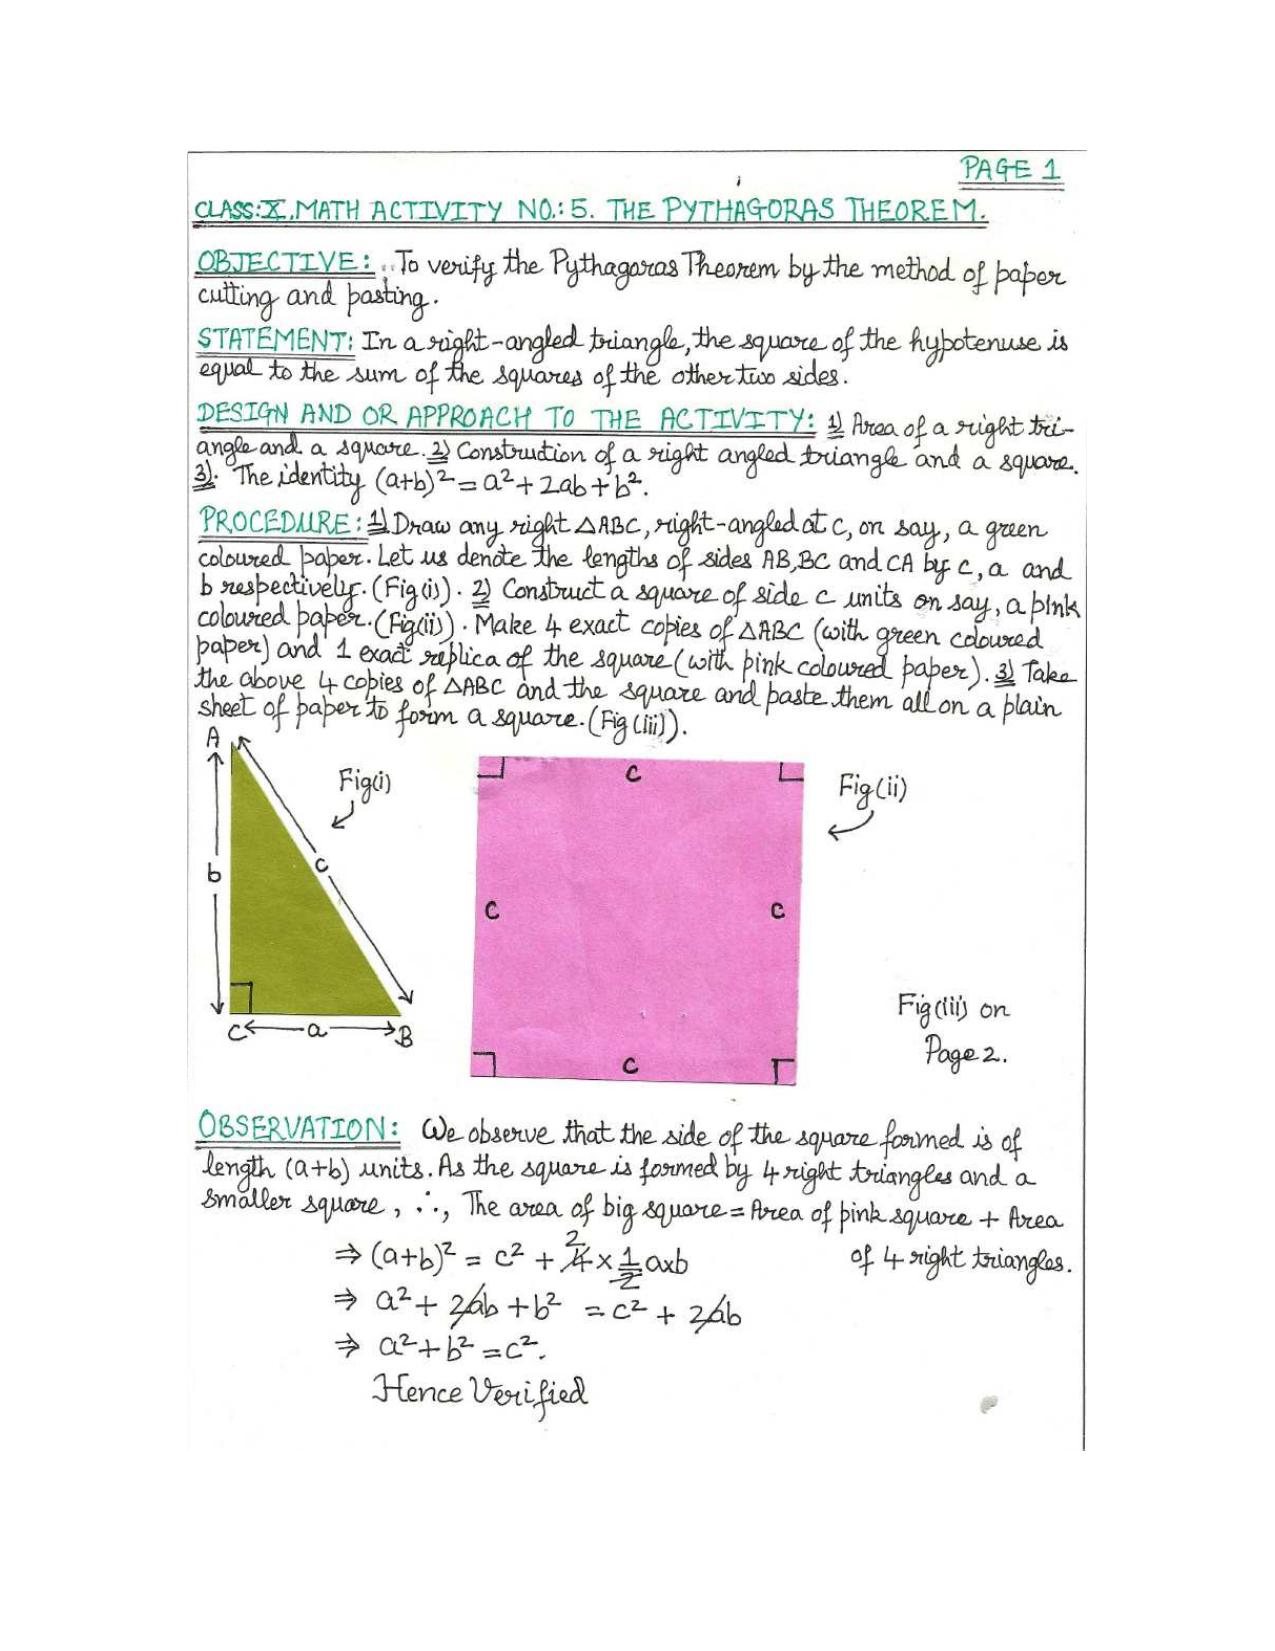 PAGE 1
CLASS:X, MATH ACTIVITY NO.: 5. THE PYTHAGORAS THEOREM.
OBJECTIVE: To verify the Pythagoras Theorem by the method of paper
cutting and pasting.
STATEMENT: In a right-angled triangle, the square of the hypotenuse is
equal to the sum of the squares of the other two sides.
DESIGN AND OR APPROACH TO THE ACTIVITY: 1) Area of a right tri-
angle and a square. 2) Construction of a right angled triangle and a square.
3). The identity (a+b)² = a² + 2ab + b².
PROCEDURE: 1) Draw any right △ABC, right-angled at C, on say, a green
coloured paper. Let us denote the lengths of sides AB, BC and CA by c, a and
b respectively. (Fig(i)). 2) Construct a square of side c units on say, a pink
coloured paper. (Fig(ii)). Make 4 exact copies of △ABC (with green coloured
paper) and 1 exact replica of the square (with pink coloured paper). 3) Take
the above 4 copies of △ABC and the square and paste them all on a plain
sheet of paper to form a square. (Fig(iii)).
A
b
c
C a B
Fig(i)
c
c
c
c
Fig(ii)
Fig(iii) on
Page 2.
OBSERVATION: We observe that the side of the square formed is of
length (a+b) units. As the square is formed by 4 right triangles and a
smaller square, ∴, The area of big square = Area of pink square + Area
of 4 right triangles.
2
⇒ (a+b)² = c² + 4 × 1/2 axb
⇒ a² + 2ab + b² = c² + 2ab
⇒ a² + b² = c².
Hence Verified